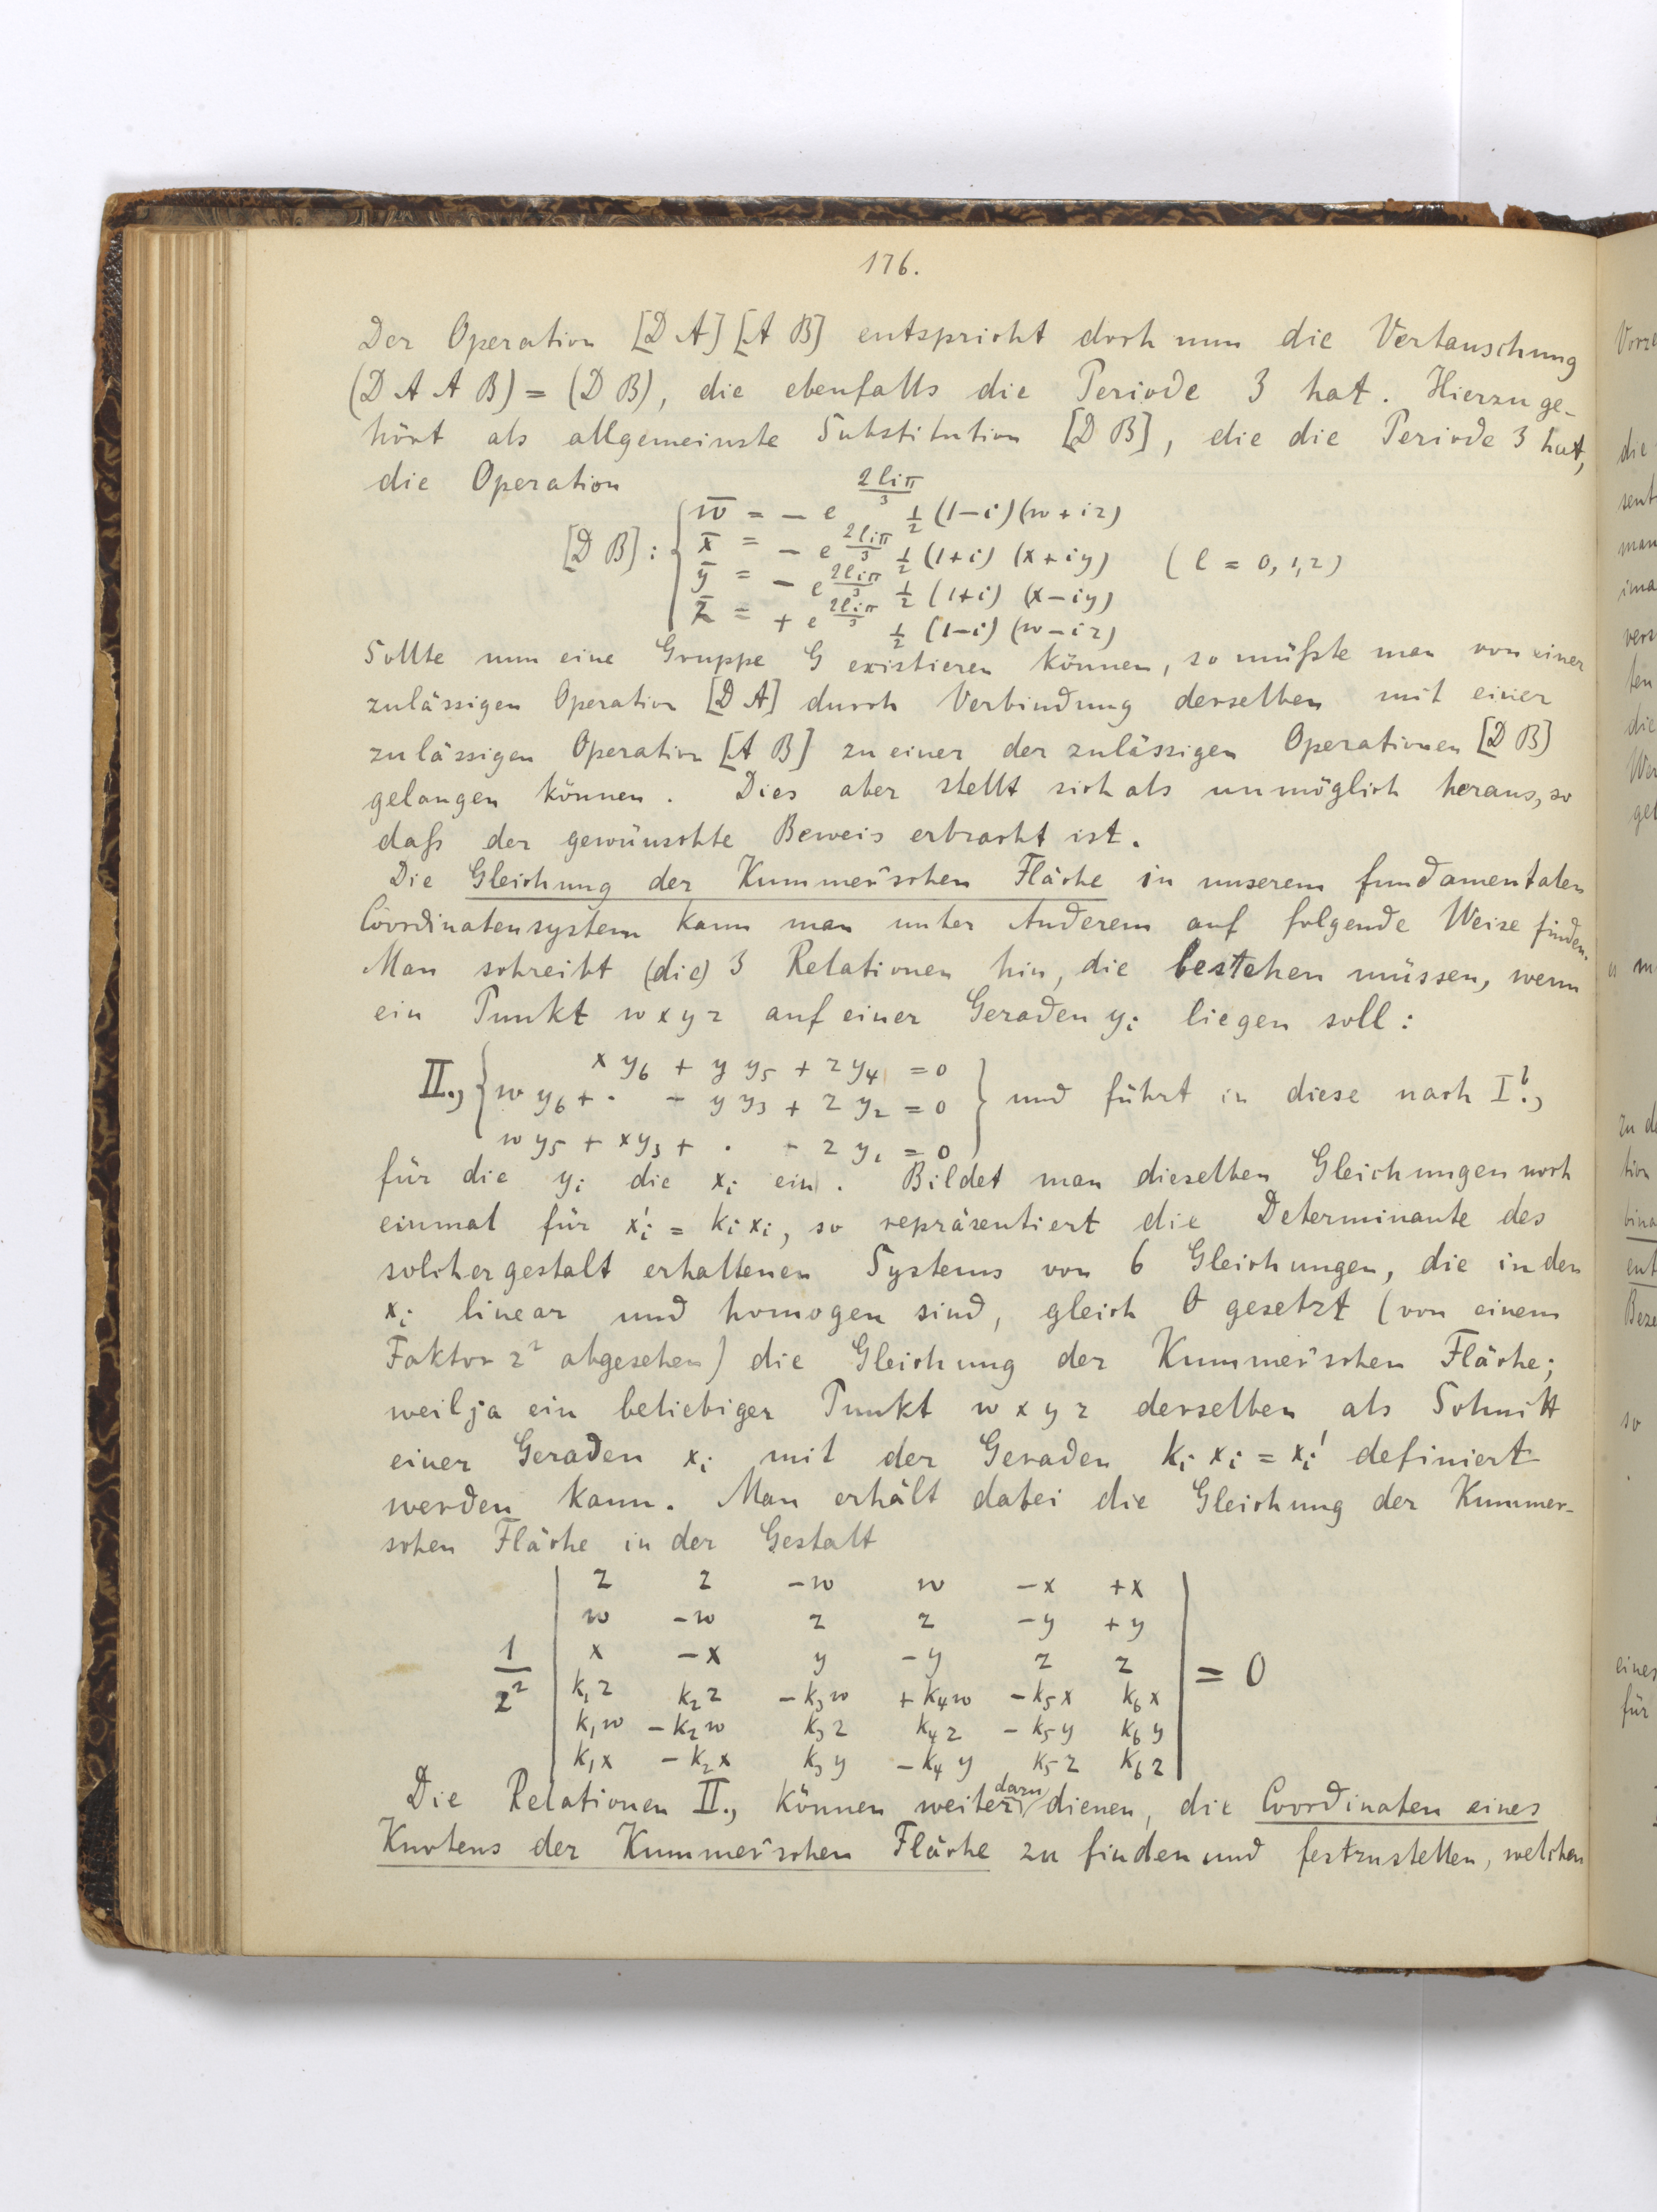 176.
Der Operation [D A] [A B] entspricht doch nun die Vertauschung
(D A A B) = (D B), die ebenfalls die Periode 3 hat. Hierzu ge-
hört als allgemeinste Substitution [D B], die die Periode 3 hat,
die Operation
[D B] : { w̄ = - e^{2liπ/3} 1/2 (1-i) (w + iz)
x̄ = - e^{2liπ/3} 1/2 (1+i) (x + iy) ( l = 0, 1, 2 )
ȳ = - e^{2liπ/3} 1/2 (1+i) (x - iy)
z̄ = + e^{2liπ/3} 1/2 (1-i) (w - iz)
Sollte nun eine Gruppe G existieren können, so müßte man von einer
zulässigen Operation [D A] durch Verbindung derselben mit einer
zulässigen Operation [A B] zu einer der zulässigen Operationen [D B]
gelangen können. Dies aber stellt sich als unmöglich heraus, so
daß der gewünschte Beweis erbracht ist.
Die Gleichung der Kummer'schen Fläche in unserem fundamentalen
Coordinatensystem kann man unter Anderem auf folgende Weise finden.
Man schreibt (die) 3 Relationen hin, die bestehen müssen, wenn
ein Punkt w x y z auf einer Geraden yᵢ liegen soll :
x y₆ + y y₅ + z y₄ = 0
II., { w y₆ + · - y y₃ + z y₂ = 0 } und führt in diese nach I.,
w y₅ + x y₃ + · - z y₁ = 0
für die yᵢ die xᵢ ein. Bildet man dieselben Gleichungen noch
einmal für xᵢ' = kᵢ xᵢ, so repräsentiert die Determinante des
solchergestalt erhaltenen Systems von 6 Gleichungen, die in den
xᵢ linear und homogen sind, gleich 0 gesetzt (von einem
Faktor z² abgesehen) die Gleichung der Kummer'schen Fläche;
weil ja ein beliebiger Punkt w x y z derselben als Schnitt
einer Geraden xᵢ mit der Geraden kᵢ xᵢ = xᵢ' definiert
werden kann. Man erhält dabei die Gleichung der Kummer-
schen Fläche in der Gestalt
| z z -w w -x +x |
| w -w z z -y +y |
1/z² | x -x y -y z z | = 0
| k₁z k₂z -k₃w +k₄w -k₅x k₆x |
| k₁w -k₂w k₃z k₄z -k₅y k₆y |
| k₁x -k₂x k₃y -k₄y k₅z k₆z |
Die Relationen II., können weiter dazu dienen, die Coordinaten eines
Knotens der Kummer'schen Fläche zu finden und festzustellen, welchen